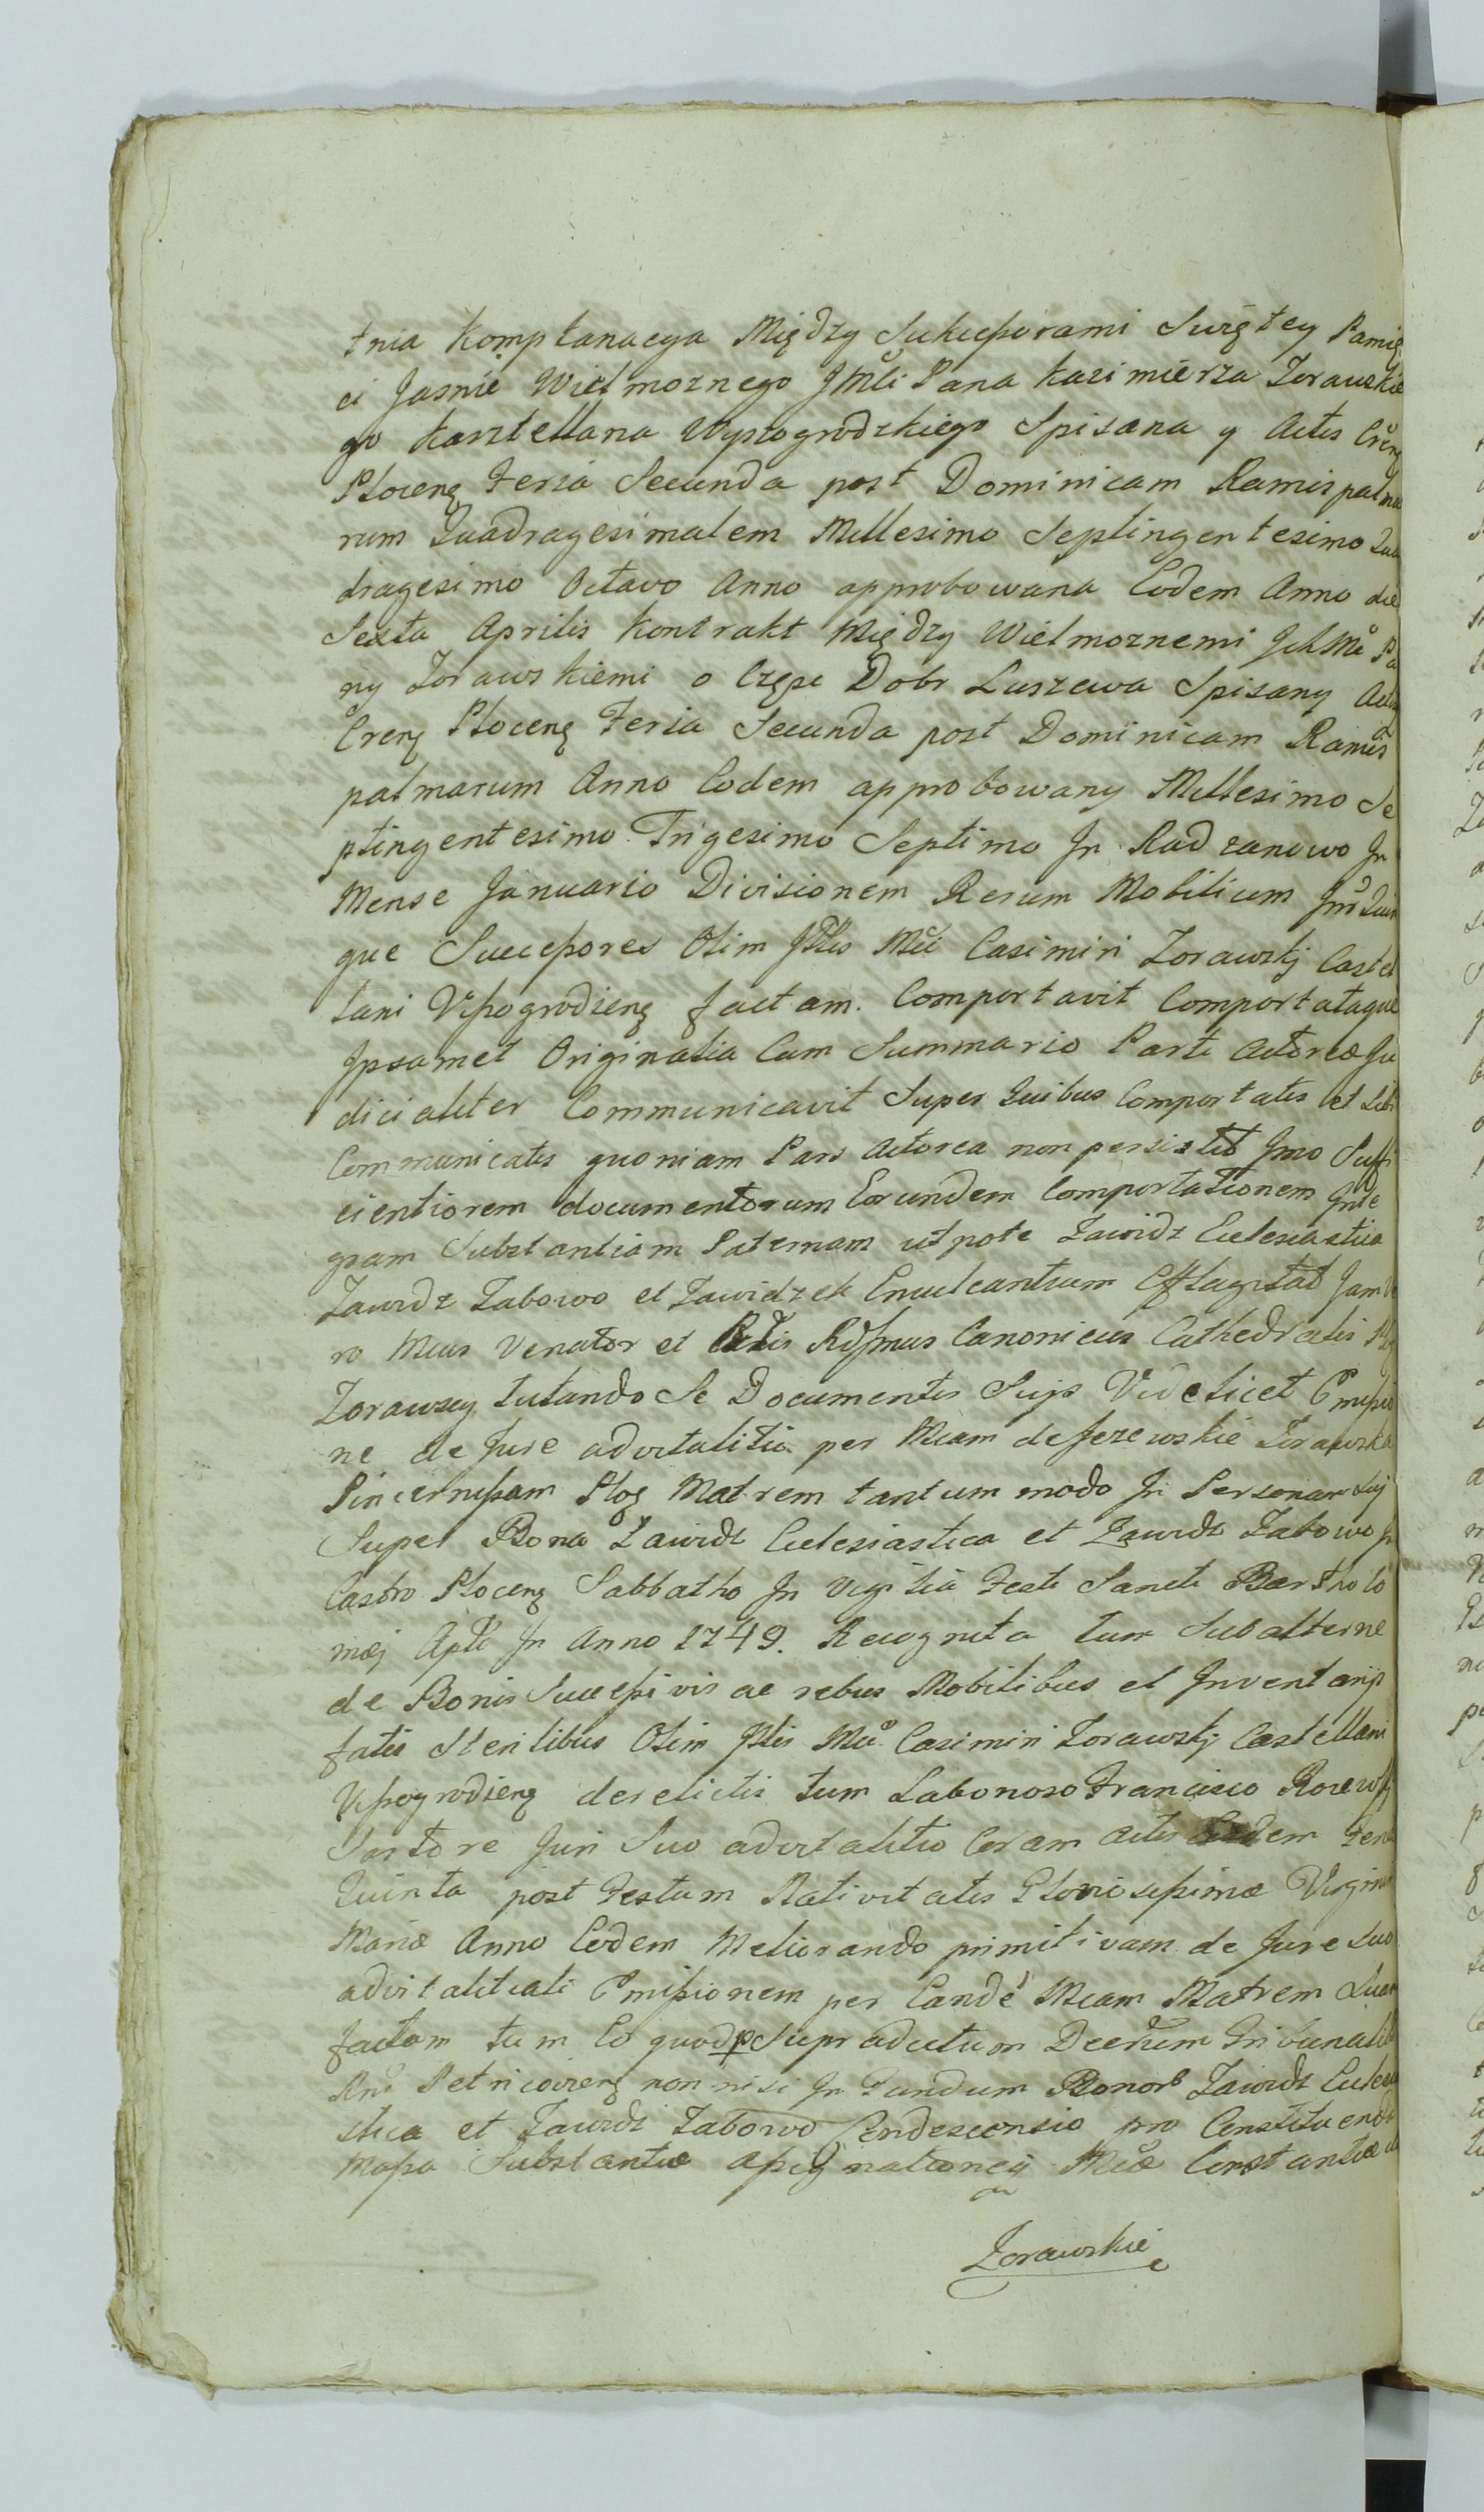 tnia Komplanacya Między Sukcessorami Swiętey Pamię
ci Jasnie Wielmoznego JMci Pana Kazimierza Zorawskie
go Kasztellana Wyszogrodzkiego Spisana y Actis Cren
Plocen Feria Secunda post Dominicam Ramis palma
rum Quadragesimalem Millesimo Septingentesimo Qua
dragesimo Octavo Anno approbowana Eodem Anno die
Sexta Aprilis Kontrakt Między Wielmoznemi Pa
ny Zorawskiemi o Częsc Dobr Luszewa Spisany Actis
Cren Plocen Feria Secunda post Dominicam Ramis
palmarum Anno Eodem approbowany Millesimo Se
ptingentesimo Trigesimo Septimo In Radzanowo In
Mense Januario Divisionem Rerum Mobilium
que Successores Olim Casimiri Zorawskj Castel
lani Vissogrodien factam. Comportavit Comportataque
Ipsamet Originalia Cum Summario Parti Actoreæ Ju
dicialiter Communicavit Super Quibus Comportatis et Sibi
Communicatis quoniam Pars Actorea non persistit Imo Suffi
cientiorem documentorum Eorundem Comportationem Inte
gram Substantiam Paternam utpote Zawidz Ecclesiastica
Zawidz Zabowo et Zawidzek Enucleantium Efflagitat Jam Ve
ro Mcus Venator et Rdssmus Canonicus Cathedralis
Zorawscy tutando Se Documentis Suis Videlicet Emissio
ne de Jure advitalitio per Mcam de Jezewskie Zorawska
Pincernissam Ploc Matrem tantum modo In Personam Suj
Super Bona Zawidz Ecclesiastica et Zawidz Zabowo In
Castro Plocen Sabbatho In Vigilia Festi Sancti Bartholo
mæj Aptli In Anno 1749. Recognita tum Subalterne
de Bonis Successivis ac rebus Mobilibus et Inventarijs
fatis Sterilibus Olim Casimiri Zorawskj Castellani
Vissogrodien derelictis tum Laborioso Francisco
Sartore Juri Suo advitalitio Coram Actis Eisdem Feria
Quinta post Festum Nativitatis Gloriosissimæ Virginis
Mariæ Anno Eodem Meliorando primitivam de Jure Suo
advitalitiali Emissionem per Eande Mcam Matrem Suam
factam tum Eo quod Supradictum Decretum Tribunalis
Petricovien non nisi In Fundum Bonor Zawidz Ecclesia
stica et Zawidz Zabowo Condescensio pro Constituenda
Massa Substantiæ Assignationeq Constantiæ de
Zorawskie